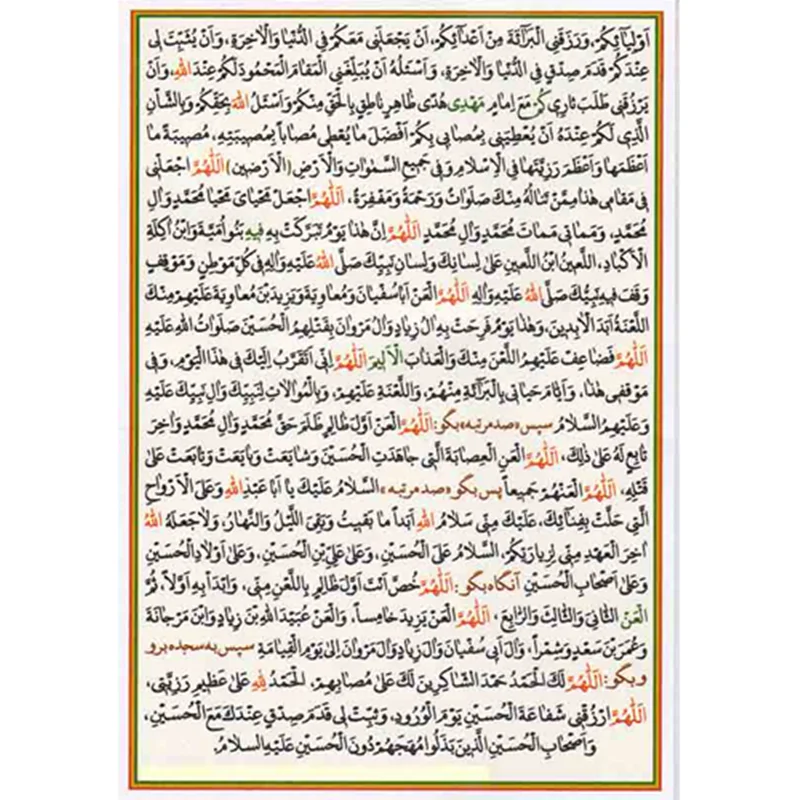 اَوْلِیٰائِکُمْ، وَرَزَقَنِی الْبَرٰائَةَ مِنْ اَعْدٰائِکُمْ، اَنْ یَجْعَلَنِی مَعَکُمْ فِی الدُّنْیٰا وَالْاٰخِرَةِ، وَاَنْ یُثَبِّتَ لِی
عِنْدَکُمْ قَدَمَ صِدْقٍ فِی الدُّنْیٰا وَالْاٰخِرَةِ، وَاَسْئَلُهُ اَنْ یُبَلِّغَنِی الْمَقٰامَ الْمَحْمُودَ لَکُمْ عِنْدَ اللهِ، وَاَنْ
یَرْزُقَنِی طَلَبَ ثٰارِی کُمْ مَعَ اِمٰامٍ مَهْدِی هُدًی ظٰاهِرٍ نٰاطِقٍ بِالْحَقِّ مِنْکُمْ وَاَسْئَلُ اللهَ بِحَقِّکُمْ وَبِالشَّاْنِ
الَّذِی لَکُمْ عِنْدَهُ اَنْ یُعْطِیَنِی بِمُصٰابِی بِکُمْ اَفْضَلَ مٰا یُعْطِی مُصٰاباً بِمُصِیبَتِهِ، مُصِیبَةً مٰا
اَعْظَمَهٰا وَاَعْظَمَ رَزِیَّتَهٰا فِی الْاِسْلٰامِ وَفِی جَمِیعِ السَّمٰوٰاتِ وَالْاَرْضِ (الْاَرَضِینَ) اَللّٰهُمَّ اجْعَلْنِی
فِی مَقٰامِی هٰذٰا مِمَّنْ تَنٰالُهُ مِنْكَ صَلَوٰاتٌ وَرَحْمَةٌ وَمَغْفِرَةٌ، اَللّٰهُمَّ اجْعَلْ مَحْیٰایَ مَحْیٰا مُحَمَّدٍ وَاٰلِ
مُحَمَّدٍ، وَمَمٰاتِی مَمٰاتَ مُحَمَّدٍ وَاٰلِ مُحَمَّدٍ اَللّٰهُمَّ اِنَّ هٰذٰا یَوْمٌ تَبَرَّکَتْ بِهِ فِیهِ بَنُو اُمَیَّةَ وَابْنُ اٰکِلَةِ
الْاَکْبٰادِ، اللَّعِینُ ابْنُ اللَّعِینِ عَلیٰ لِسٰانِكَ وَلِسٰانِ نَبِیِّكَ صَلَّی اللهُ عَلَیْهِ وَاٰلِهِ فِی کُلِّ مَوْطِنٍ وَمَوْقِفٍ
وَقَفَ فِیهِ نَبِیُّكَ صَلَّی اللهُ عَلَیْهِ وَاٰلِهِ اَللّٰهُمَّ الْعَنْ اَبٰا سُفْیٰانَ وَمُعٰاوِیَةَ وَیَزِیدَ بْنَ مُعٰاوِیَةَ عَلَیْهِمْ مِنْكَ
اللَّعْنَةُ اَبَدَ الْاٰبِدِینَ، وَهٰذٰا یَوْمٌ فَرِحَتْ بِهِ اٰلُ زِیٰادٍ وَاٰلُ مَرْوٰانَ بِقَتْلِهِمُ الْحُسَیْنَ صَلَوٰاتُ اللهِ عَلَیْهِ
اَللّٰهُمَّ فَضٰاعِفْ عَلَیْهِمُ اللَّعْنَ مِنْكَ وَالْعَذٰابَ الْاَلِیمَ اَللّٰهُمَّ اِنِّی اَتَقَرَّبُ اِلَیْكَ فِی هٰذَا الْیَوْمِ، وَفِی
مَوْقِفِی هٰذٰا، وَاَیّٰامِ حَیٰاتِی بِالْبَرٰائَةِ مِنْهُمْ، وَاللَّعْنَةِ عَلَیْهِمْ، وَبِالْمُوٰالٰاتِ لِنَبِیِّكَ وَاٰلِ نَبِیِّكَ عَلَیْهِ
وَعَلَیْهِمُ السَّلٰامُ سپس «صد مرتبه» بگو: اَللّٰهُمَّ الْعَنْ اَوَّلَ ظٰالِمٍ ظَلَمَ حَقَّ مُحَمَّدٍ وَاٰلِ مُحَمَّدٍ وَاٰخِرَ
تٰابِعٍ لَهُ عَلیٰ ذٰلِكَ، اَللّٰهُمَّ الْعَنِ الْعِصٰابَةَ الَّتِی جٰاهَدَتِ الْحُسَیْنَ وَشٰایَعَتْ وَبٰایَعَتْ وَتٰابَعَتْ عَلیٰ
قَتْلِهِ، اَللّٰهُمَّ الْعَنْهُمْ جَمِیعاً پس بگو «صد مرتبه» السَّلٰامُ عَلَیْكَ یٰا اَبٰا عَبْدِ اللهِ وَعَلَی الْاَرْوٰاحِ
الَّتِی حَلَّتْ بِفِنٰائِكَ، عَلَیْكَ مِنِّی سَلٰامُ اللهِ اَبَداً مٰا بَقِیتُ وَبَقِیَ اللَّیْلُ وَالنَّهٰارُ، وَلٰا جَعَلَهُ اللهُ
اٰخِرَ الْعَهْدِ مِنِّی لِزِیٰارَتِکُمْ، السَّلٰامُ عَلَی الْحُسَیْنِ، وَعَلیٰ عَلِیِّ بْنِ الْحُسَیْنِ، وَعَلیٰ اَوْلٰادِ الْحُسَیْنِ
وَعَلیٰ اَصْحٰابِ الْحُسَیْنِ آنگاه بگو: اَللّٰهُمَّ خُصَّ اَنْتَ اَوَّلَ ظٰالِمٍ بِاللَّعْنِ مِنِّی، وَابْدَاْ بِهِ اَوَّلاً، ثُمَّ
الْعَنِ الثّٰانِیَ وَالثّٰالِثَ وَالرّٰابِعَ، اَللّٰهُمَّ الْعَنْ یَزِیدَ خٰامِساً، وَالْعَنْ عُبَیْدَ اللهِ بْنَ زِیٰادٍ وَابْنَ مَرْجٰانَةَ
وَعُمَرَ بْنَ سَعْدٍ وَشِمْراً، وَاٰلَ اَبِی سُفْیٰانَ وَاٰلَ زِیٰادٍ وَاٰلَ مَرْوٰانَ اِلیٰ یَوْمِ الْقِیٰامَةِ سپس به سجده برو
و بگو: اَللّٰهُمَّ لَكَ الْحَمْدُ حَمْدَ الشّٰاکِرِینَ لَكَ عَلیٰ مُصٰابِهِمْ، الْحَمْدُ لِلّٰهِ عَلیٰ عَظِیمِ رَزِیَّتِی،
اَللّٰهُمَّ ارْزُقْنِی شَفٰاعَةَ الْحُسَیْنِ یَوْمَ الْوُرُودِ، وَثَبِّتْ لِی قَدَمَ صِدْقٍ عِنْدَكَ مَعَ الْحُسَیْنِ،
وَاَصْحٰابِ الْحُسَیْنِ الَّذِینَ بَذَلُوا مُهَجَهُمْ دُونَ الْحُسَیْنِ عَلَیْهِ السَّلٰامُ.